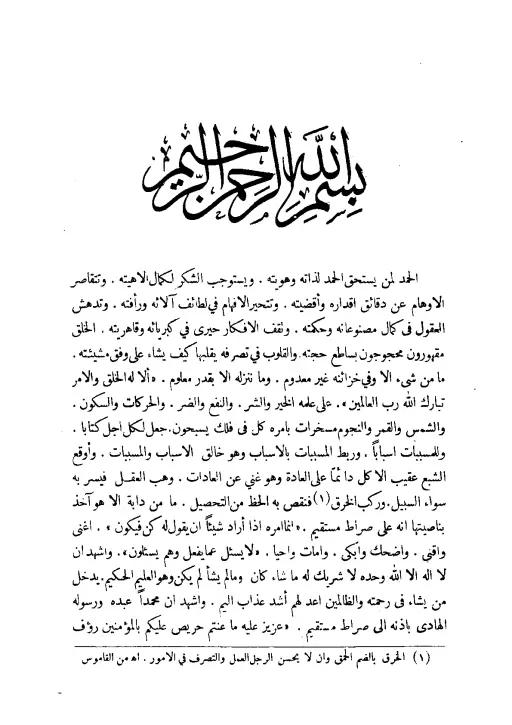 بسم الله الرحمن الرحيم
الحمد لمن يستحق الحمد لذاته وهويته . ويستوجب الشكر لكمال الاهيته . وتتقاصر
الاوهام عن دقائق اقداره وأقضيته . وتتحير الافهام في لطائف آلائه ورأفته . وتدهش
العقول فى كمال مصنوعاته وحكمته . وتقف الافكار حيرى في كبريائه وقاهريته . الخلق
مقهورون محجوجون بساطع حجته والقلوب في تصرفه يقلبها كيف يشاء على وفق مشيئته .
ما من شىء الا وفي خزائنه غير معدوم . وما ننزله الا بقدر معلوم . «ألا له الخلق والامر
تبارك الله رب العالمين» . على علمه الخير والشر . والنفع والضر . والحركات والسكون .
والشمس والقمر والنجوم مسخرات بامره كل فى فلك يسبحون . جعل لكل اجل كتابا .
وللمسببات اسباباً . وربط المسببات بالاسباب وهو خالق الاسباب والمسببات . وأوقع
الشبع عقيب الاكل دائماً على العادة وهو غني عن العادات . وهب العقل فيسر به
سواء السبيل . وركب الخرق (١) فنقص به الحظ من التحصيل . ما من دابة الا هو آخذ
بناصيتها انه على صراط مستقيم . «انما امره اذا أراد شيئاً ان يقول له كن فيكون» . اغنى
واقنى . واضحك وابكى . وامات واحيا . «لا يسئل عما يفعل وهم يسئلون» . واشهد ان
لا اله الا الله وحده لا شريك له ما شاء كان ومالم يشأ لم يكن وهو العليم الحكيم . يدخل
من يشاء فى رحمته والظالمين اعد لهم أشد عذاب اليم . واشهد ان محمداً عبده ورسوله
الهادى باذنه الى صراط مستقيم . «عزيز عليه ما عنتم حريص عليكم بالمؤمنين رؤف
(١) الخرق بالضم الحمق وان لا يحسن الرجل العمل والتصرف في الامور . اه من القاموس